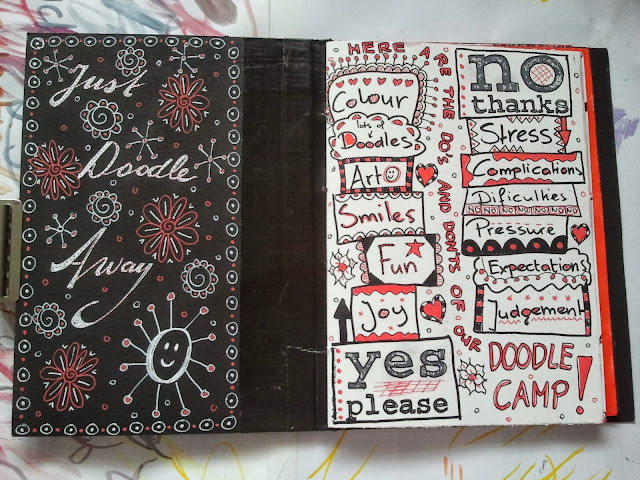 Just
Doodle
Away
HERE ARE THE DO'S AND DON'TS OF OUR
DOODLE
CAMP!
Colour
lots of
Doodles
Art
Smiles
Fun
Joy
yes
please
no
thanks
Stress
Complications
Dificulties
NO NO NO NO NO NO
Pressure
Expectations
Judgement